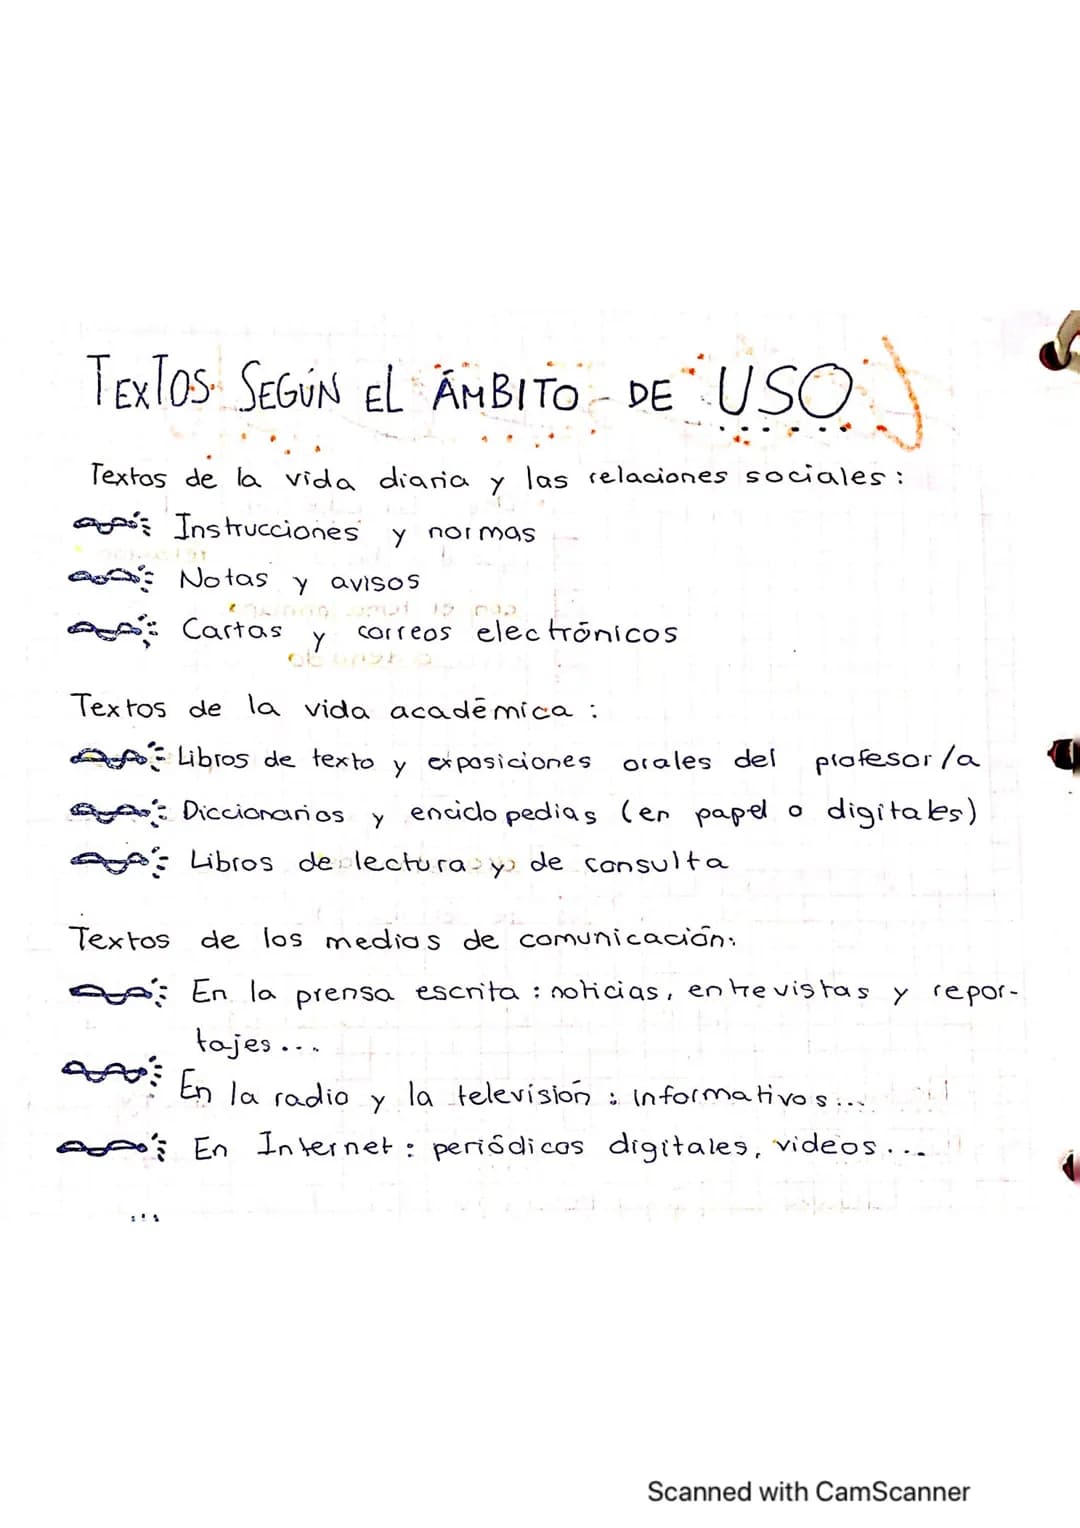 TEXTOS SEGÚN EL ÁMBITO DE USO
Textos de la vida diaria y las relaciones sociales:
Instrucciones y normas
Notas y avisos
Cartas y correos electrónicos
Textos de la vida académica:
Libros de texto y exposiciones orales del profesor/a
Diccionarios y enciclopedias (en papel o digitales)
Libros de lectura y de consulta
Textos de los medios de comunicación:
En la prensa escrita: noticias, entrevistas y repor-
tajes...
En la radio y la televisión: informativos...
En Internet: periódicos digitales, videos...
Scanned with CamScanner